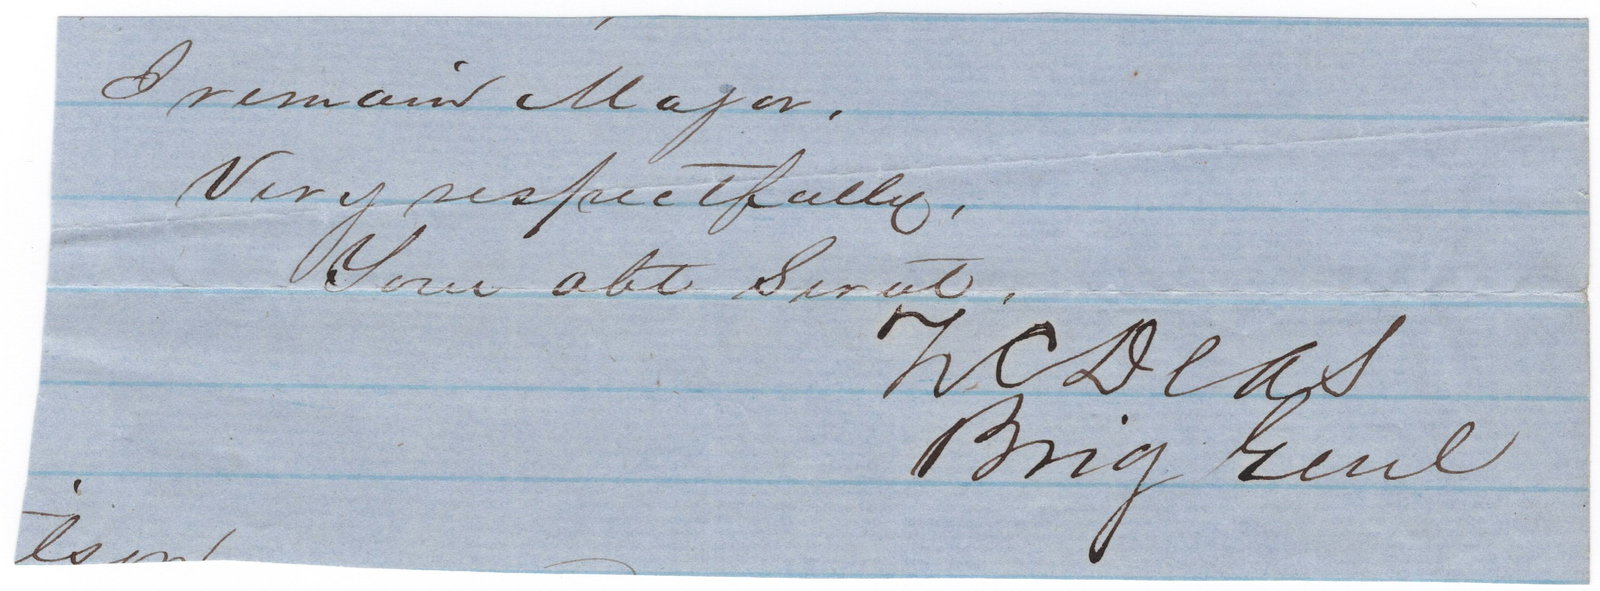 I remain Major.
Very respectfully,
Your obt Servt.
Z C Deas
Brig Genl